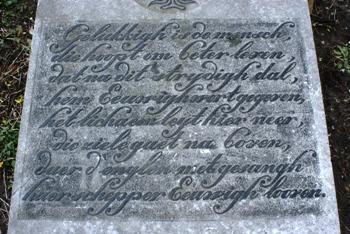 Gelukkigh is de mensch,
die hoopt om beter leven
dat na dit strydigh dal,
hem Eeuwigh wort gegeven,
het lichaem leyt hier neer,
die ziele gaet na boven,
daer d'englen met gesangh
haer schepper Eeuwigh loven.